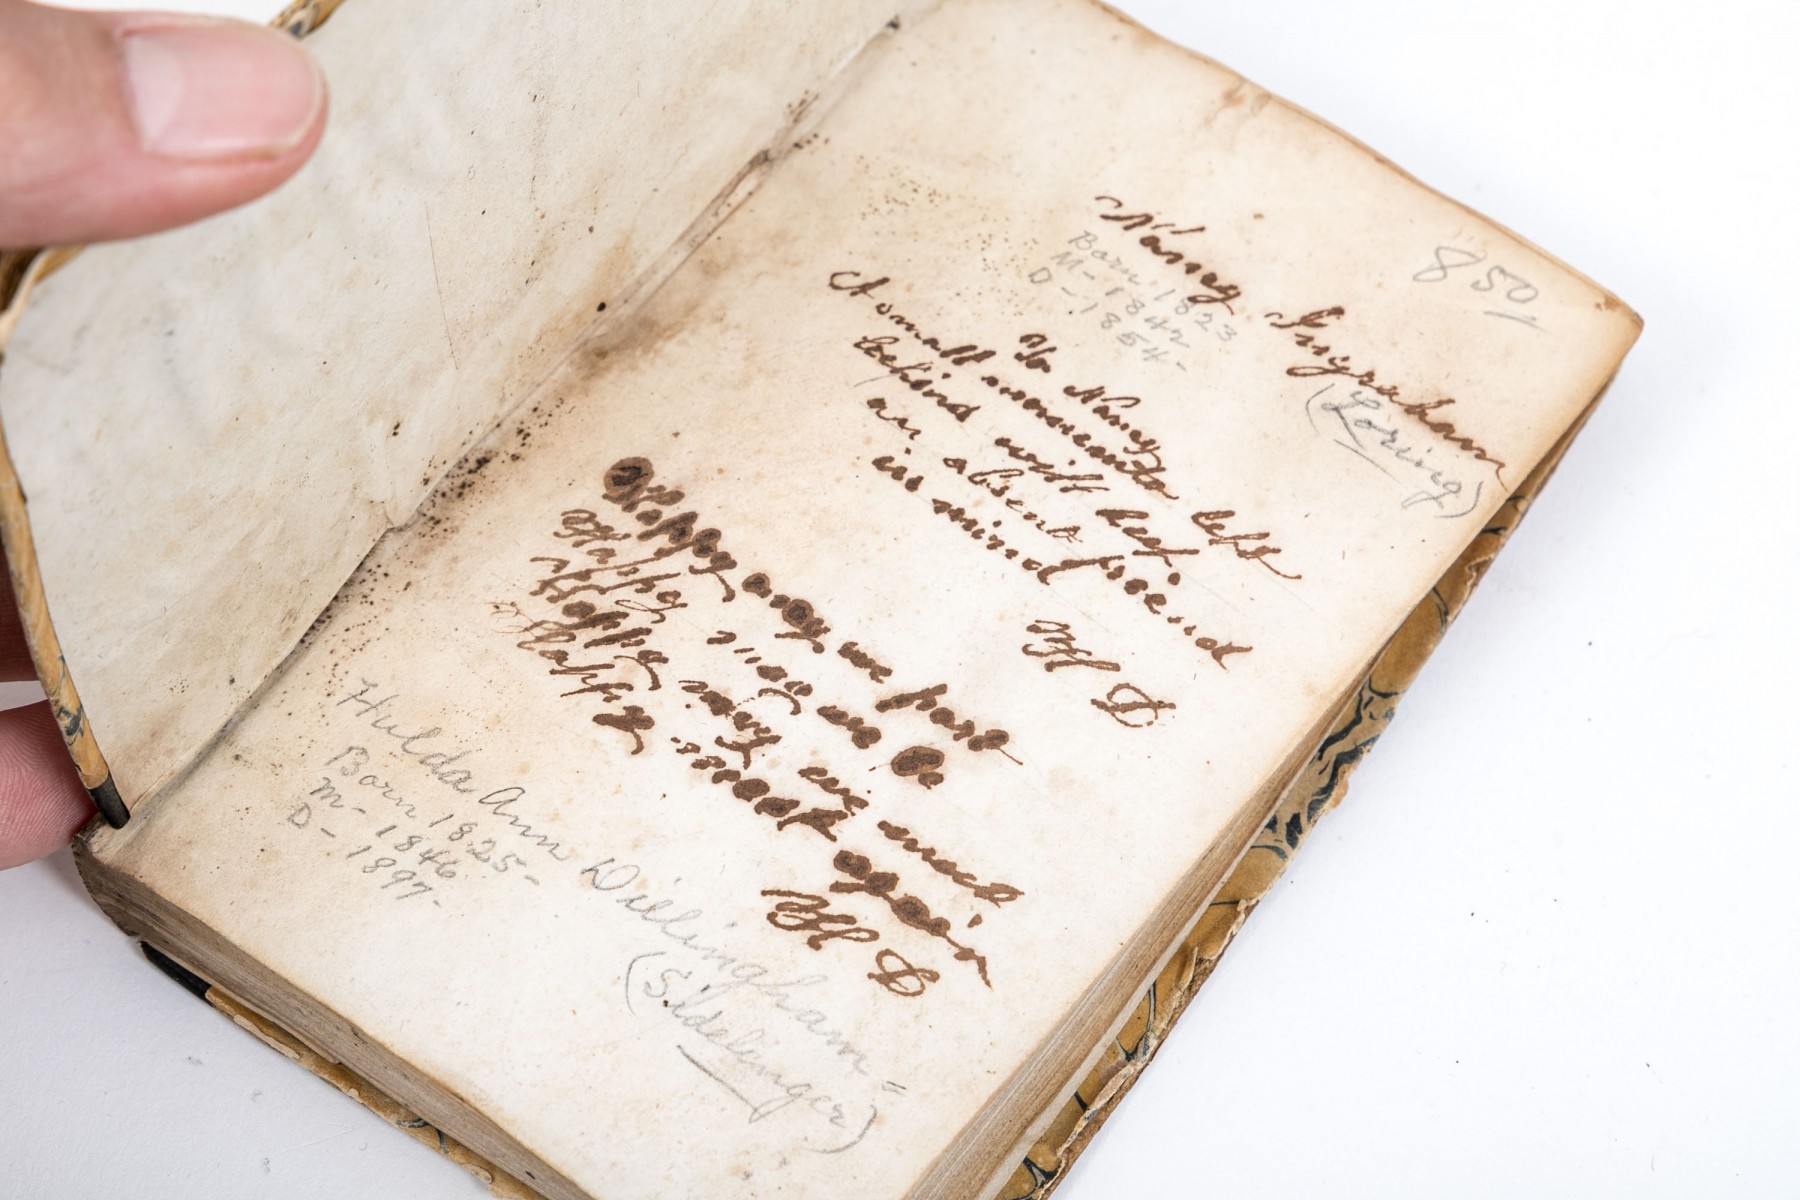 850
Nancy Ingraham
(Loring)
Born 1823
M - 1842
D - 1854 -
To Nancy
A small momento left
behind will keep
an absent friend
in mind
H D
Happy may we part
Happy may we be
Happy may we meet
Happy meet again
H D
Hulda Ann Dillingham -
(Sidelinger)
Born 1825 -
M - 1846.
D - 1897 -